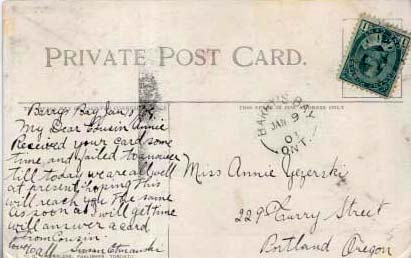 PRIVATE POST CARD.
BARRY'S BAY
JAN 9
ONT.
Barrys Bay Jan
My Dear Cousin Annie
Received your card some
time and failed to answer
till today we are all well
at present hoping this
will reach you the same
as soon as I will get time
will answer a card
From Cousin
love to all
Miss Annie Yezerski
229 Curry Street
Portland Oregon